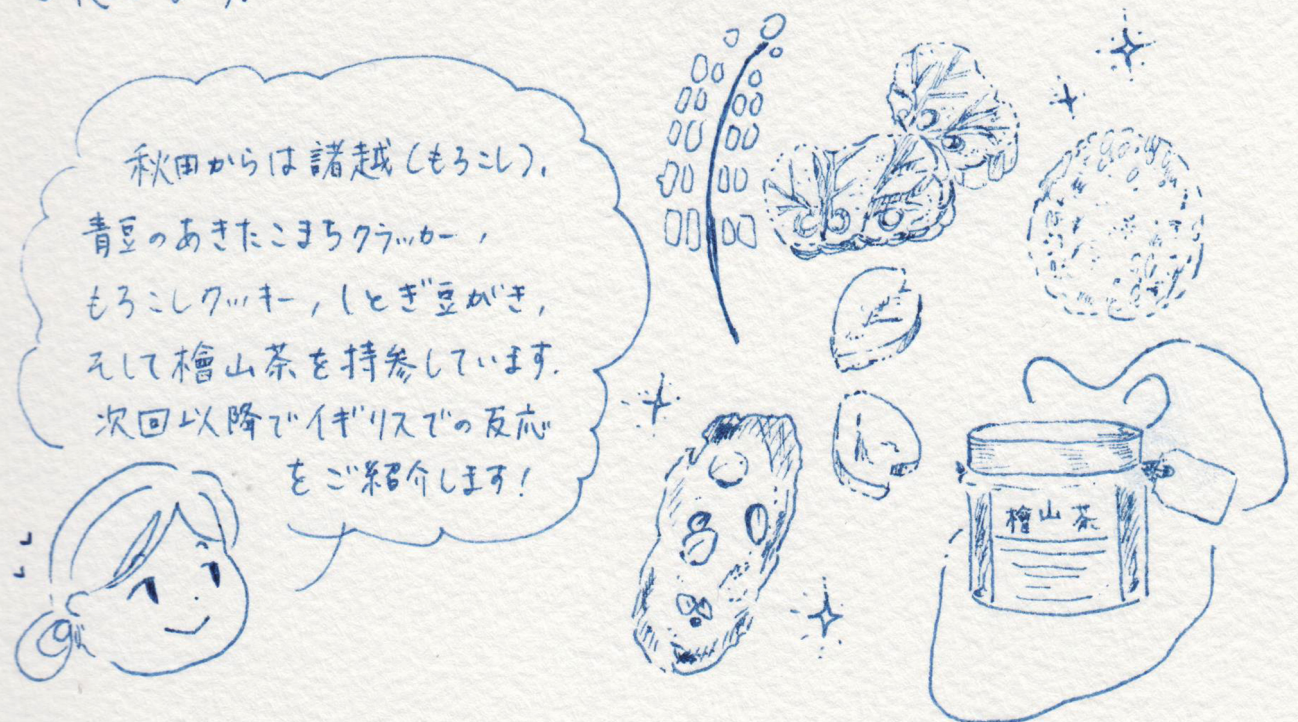 秋田からは諸越(もろこし)、
青豆のあきたこまちクラッカー、
もろこしクッキー、しとぎ豆がき、
そして檜山茶を持参しています.
次回以降でイギリスでの反応
をご紹介します!
檜山茶